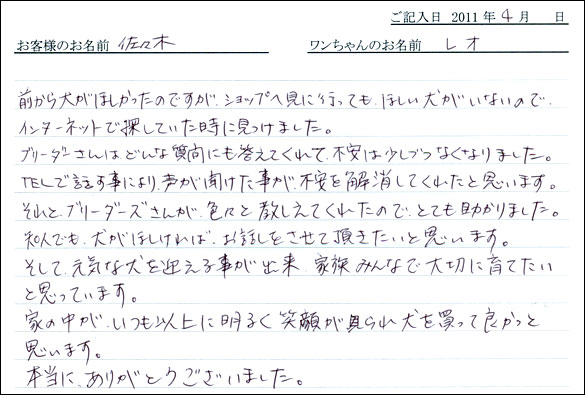 ご記入日 2011 年 4 月 日
お客様のお名前 佐々木 ワンちゃんのお名前 レオ
前から犬がほしかったのですが、ショップへ見に行っても、ほしい犬がいないので、
インターネットで探していた時に見つけました。
ブリーダーさんは、どんな質問にも答えてくれて、不安は少しづつなくなりました。
TELで話す事により、声が聞けた事が、不安を解消してくれたと思います。
それと、ブリーダーズさんが、色々と教しえてくれたので、とても助かりました。
知人でも、犬がほしければ、お話しをさせて頂きたいと思います。
そして、元気な犬を迎える事が出来、家族みんなで大切に育てたい
と思っています。
家の中が、いつも以上に明るく笑顔が見られ犬を買って良かっと
思います。
本当に、ありがとうございました。